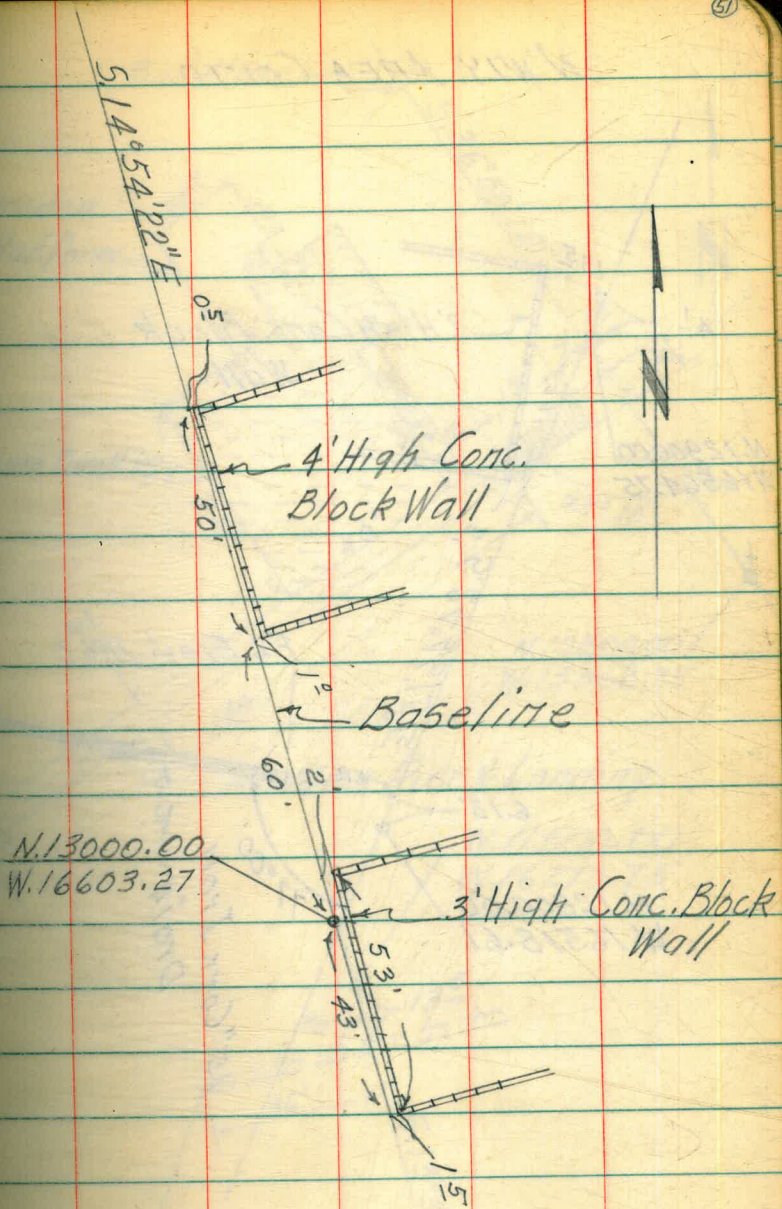 51
S.14°54'22"E
0 5
4' High Conc.
Block Wall
50'
1 0
Baseline
60'
2'
N.13000.00
W.16603.27
3' High Conc. Block
Wall
53'
43'
1 5
N